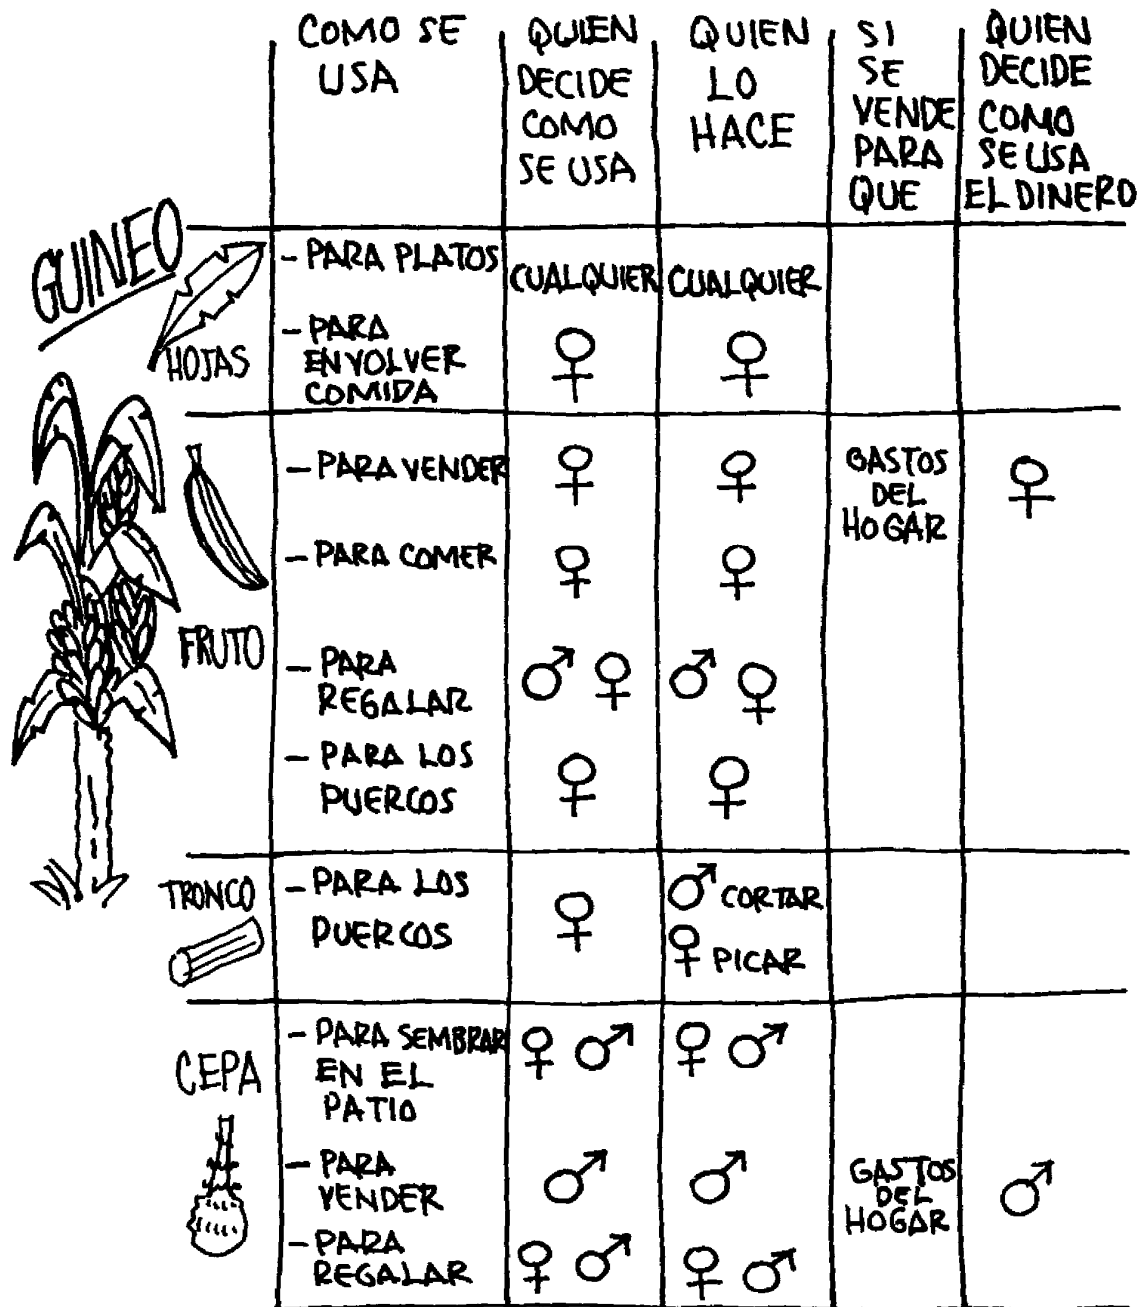 COMO SE
USA
QUIEN
DECIDE
COMO
SE USA
QUIEN
LO
HACE
SI
SE
VENDE
PARA
QUE
QUIEN
DECIDE
COMO
SE USA
EL DINERO
GUINEO
HOJAS
- PARA PLATOS
CUALQUIER
CUALQUIER
- PARA
ENVOLVER
COMIDA
♀
♀
FRUTO
- PARA VENDER
♀
♀
GASTOS
DEL
HOGAR
♀
- PARA COMER
♀
♀
- PARA
REGALAR
♂ ♀
♂ ♀
- PARA LOS
PUERCOS
♀
♀
TRONCO
- PARA LOS
PUERCOS
♀
♂ CORTAR
♀ PICAR
CEPA
- PARA SEMBRAR
EN EL
PATIO
♀ ♂
♀ ♂
- PARA
VENDER
♂
♂
GASTOS
DEL
HOGAR
♂
- PARA
REGALAR
♀ ♂
♀ ♂